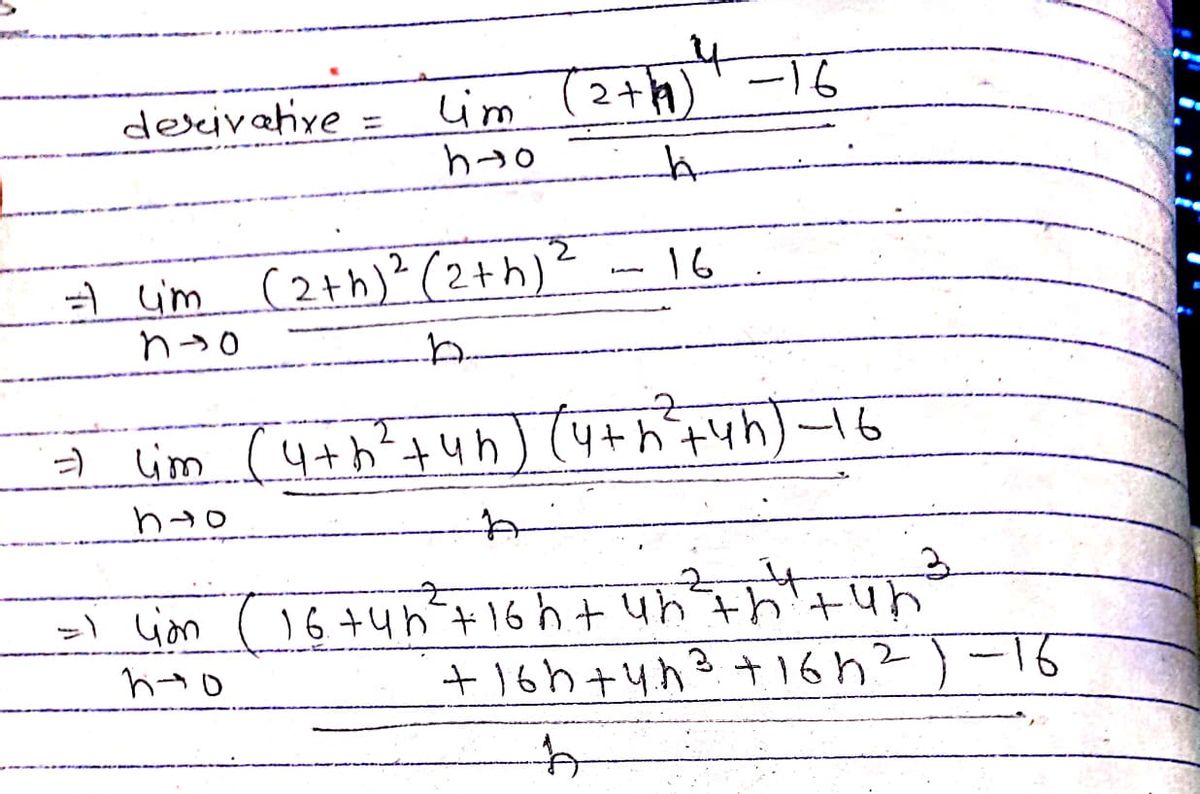 derivative = lim (2+h)⁴ -16
h→0 h
⇒ lim (2+h)² (2+h)² - 16
h→0 h
⇒ lim (4+h²+4h) (4+h²+4h) -16
h→0 h
⇒ lim ( 16 +4h² + 16h + 4h² + h⁴ + 4h³
h→0 + 16h + 4h³ + 16h² ) -16
h